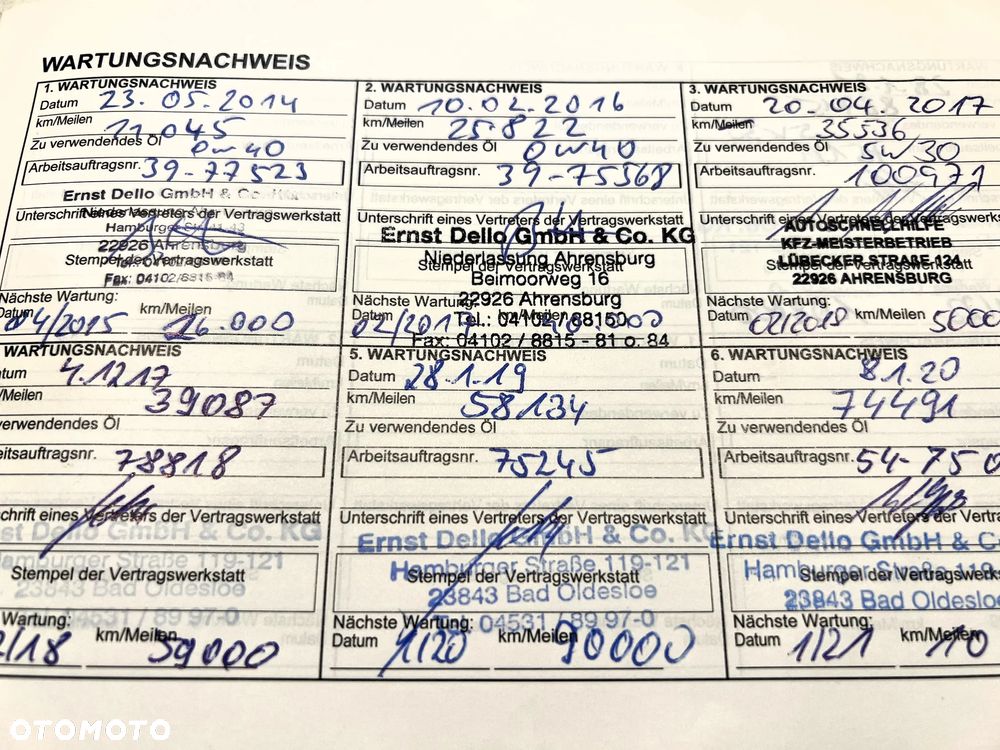 WARTUNGSNACHWEIS
1. WARTUNGSNACHWEIS
Datum 23.05.2014
km/Meilen 11.045
Zu verwendendes Öl 0w40
Arbeitsauftragsnr. 39-77523
Ernst Dello GmbH & Co. KG
Unterschrift eines Vertreters der Vertragswerkstatt
22926 Ahrensburg
Stempel der Vertragswerkstatt
Fax: 04102/8815-84
Nächste Wartung:
Datum 04/2015 km/Meilen 26.000
2. WARTUNGSNACHWEIS
Datum 10.02.2016
km/Meilen 25.822
Zu verwendendes Öl 0w40
Arbeitsauftragsnr. 39-75368
Unterschrift eines Vertreters der Vertragswerkstatt
Ernst Dello GmbH & Co. KG
Niederlassung Ahrensburg
Stempel der Vertragswerkstatt
Beimoorweg
22926 Ahrensburg
Nächste Wartung:
Tel.: 04102 / 88150
Datum 02/2017 km/Meilen
Fax: 04102 / 8815 - 81 o. 84
3. WARTUNGSNACHWEIS
Datum 20.04.2017
km/Meilen 35536
Zu verwendendes Öl 5w30
Arbeitsauftragsnr. 100971
Unterschrift eines Vertreters der Vertragswerks
AUTOSCHNELLHILFE
KFZ-MEISTERBETRIEB
LÜBECKER STRAßE 124
22926 AHRENSBURG
Nächste Wartung:
Datum 02/2019 km/Meilen 5000
WARTUNGSNACHWEIS
atum 4.12.17
/Meilen 39087
verwendendes Öl
eitsauftragsnr. 78818
chrift eines Vertreters der Vertragswerkstatt
Ernst Dello GmbH & Co. KG
Hamburger Straße 119-121
Stempel der Vertragswerkstatt
23843 Bad Oldesloe
04531 / 89 97-0
Wartung:
2/18 km/Meilen 59000
5. WARTUNGSNACHWEIS
Datum 28.1.19
km/Meilen 58134
Zu verwendendes Öl
Arbeitsauftragsnr. 75245
Unterschrift eines Vertreters der Vertragswerkstatt
Ernst Dello GmbH & Co. KG
Hamburger Straße 119-121
Stempel der Vertragswerkstatt
23843 Bad Oldesloe
04531 / 89 97-0
Nächste Wartung:
Datum 1/20 km/Meilen 90000
6. WARTUNGSNACHWEIS
Datum 8.1.20
km/Meilen 74491
Zu verwendendes Öl
Arbeitsauftragsnr. 54-750
Unterschrift eines Vertreters der Vertrag
Ernst Dello GmbH & C
Hamburger Straße 119
Stempel der Vertragswerks
23843 Bad Oldesloe
Nächste Wartung:
Datum 1/21 km/Meilen 110
OTOMOTO